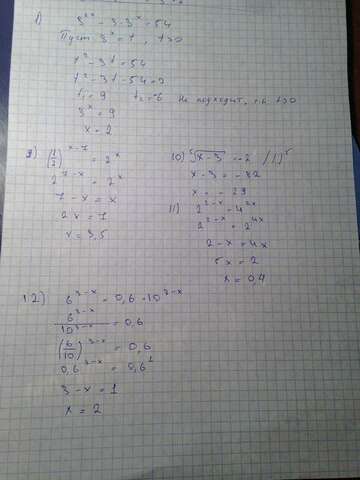 1)
3^2x - 3·3^x = 54
Пуст 3^x = t, t>0
t^2 - 3t = 54
t^2 - 3t - 54 = 0
t₁ = 9 t₂ = -6 не подходит, т.к t>0
3^x = 9
x = 2
9) (1/2)^x-7 = 2^x
2^7-x = 2^x
7 - x = x
2x = 7
x = 3,5
10) ⁵√x-3 = -2 /()^5
x - 3 = - 32
x = - 29
11) 2^2-x = 4^2x
2^2-x = 2^4x
2 - x = 4x
5x = 2
x = 0,4
12) 6^3-x = 0,6 · 10^3-x
6^3-x/10^3-x = 0,6
(6/10)^3-x = 0,6
0,6^3-x = 0,6^1
3 - x = 1
x = 2